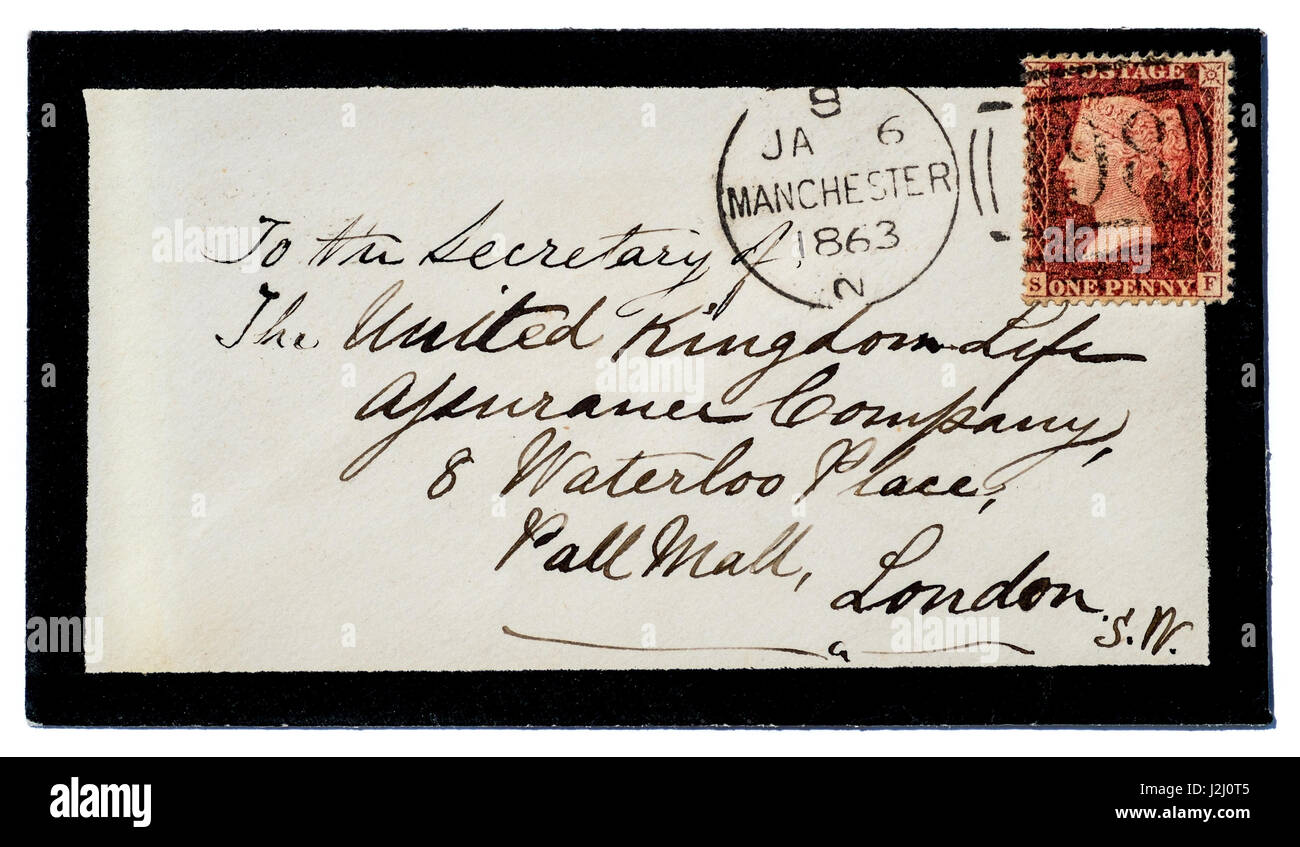 POSTAGE
S ONE PENNY F
498
8
JA 6
MANCHESTER
1863
2
To the Secretary of,
The United Kingdom Life
Aſsurance Company,
8 Waterloo Place,
Pall Mall,
London
S.W.
a alamy stock photo
alamy
Image ID: J2J0T5
www.alamy.com